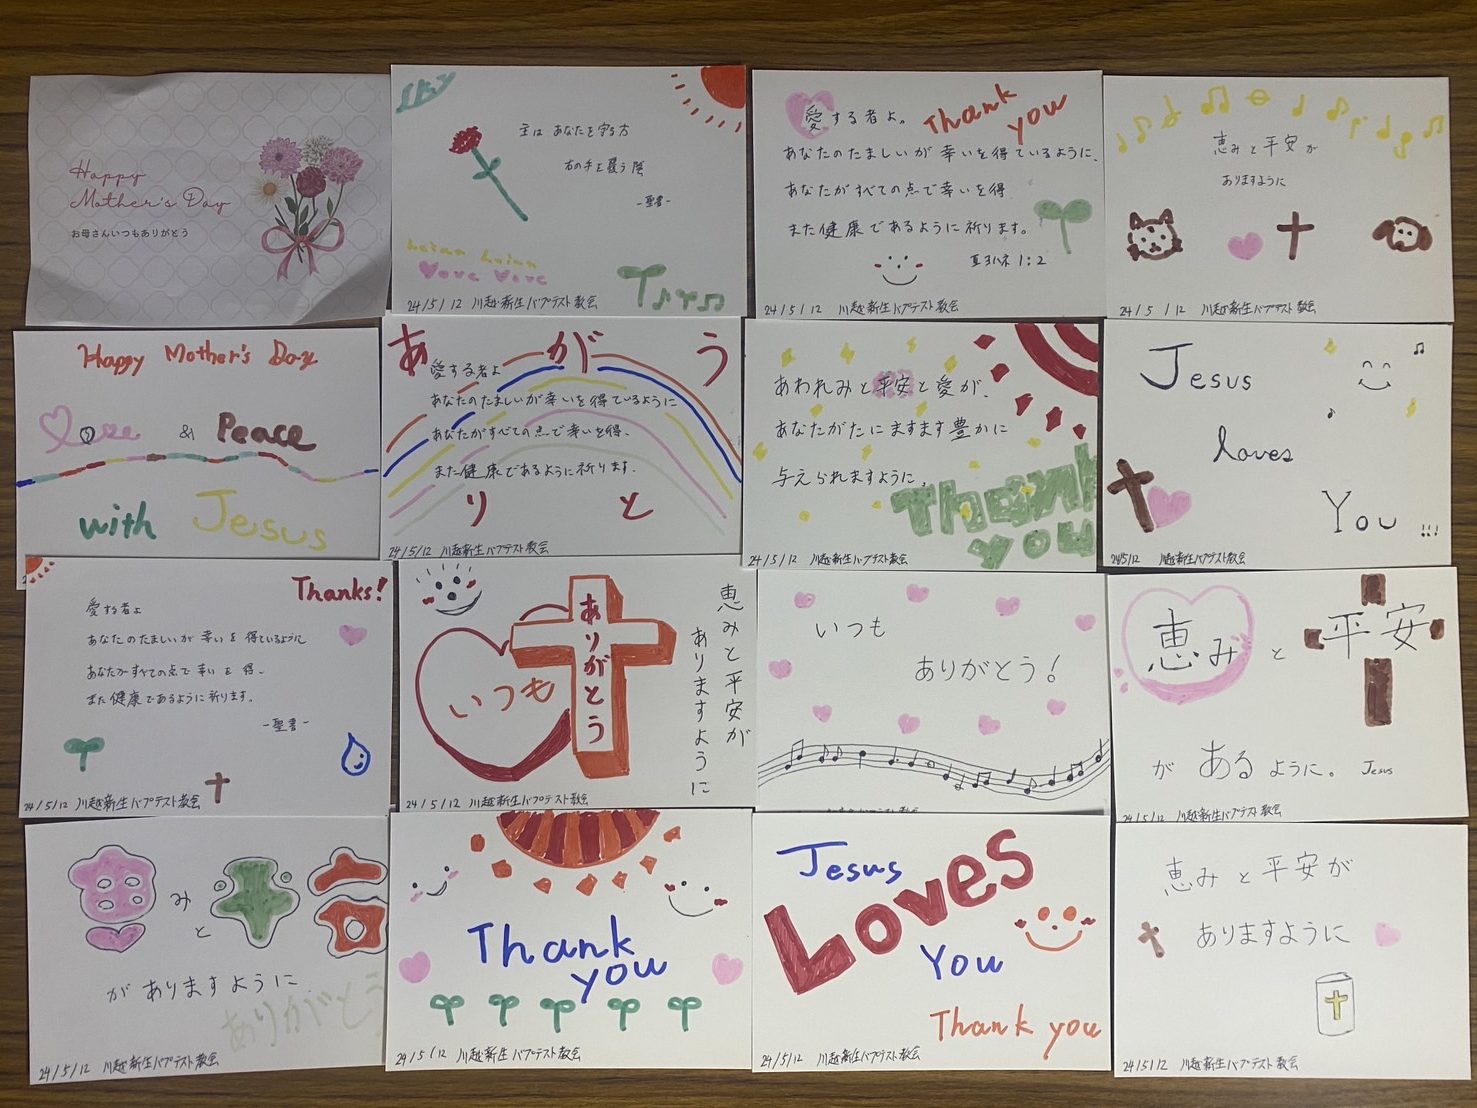 Happy
Mother's Day
お母さんいつもありがとう
主は あなたを守る方
右の手を覆う陰
-聖書-
Love Love
24/5/12 川越新生バプテスト教会
愛する者よ。
Thank
you
あなたのたましいが幸いを得ているように、
あなたがすべての点で幸いを得
また健康であるように祈ります。
Ⅲヨハネ 1:2
24/5/12 川越新生バプテスト教会
恵みと平安が
ありますように
24/5/12 川越新生バプテスト教会
Happy Mother's Day
Love & Peace
with Jesus
ありがとう
愛する者よ
あなたのたましいが幸いを得ているように
あなたがすべての点で幸いを得、
また健康であるように祈ります。
24/5/12 川越新生バプテスト教会
あわれみと平安と愛が、
あなたがたにますます豊かに
与えられますように。
Thank
you
24/5/12 川越新生バプテスト教会
Jesus
loves
You !!!
24/5/12 川越新生バプテスト教会
Thanks!
愛する者よ
あなたのたましいが幸いを得ているように
あなたがすべての点で幸いを得、
また健康であるように祈ります。
-聖書-
24/5/12 川越新生バプテスト教会
いつも
ありがとう
恵みと平安が
ありますように
24/5/12 川越新生バプテスト教会
いつも
ありがとう!
恵みと平安
があるように。 Jesus
24/5/12 川越新生バプテスト教会
恵みと平安
がありますように
ありがとう
24/5/12 川越新生バプテスト教会
Thank
you
24/5/12 川越新生バプテスト教会
Jesus
Loves
You
Thank you
24/5/12 川越新生バプテスト教会
恵みと平安が
ありますように
24/5/12 川越新生バプテスト教会